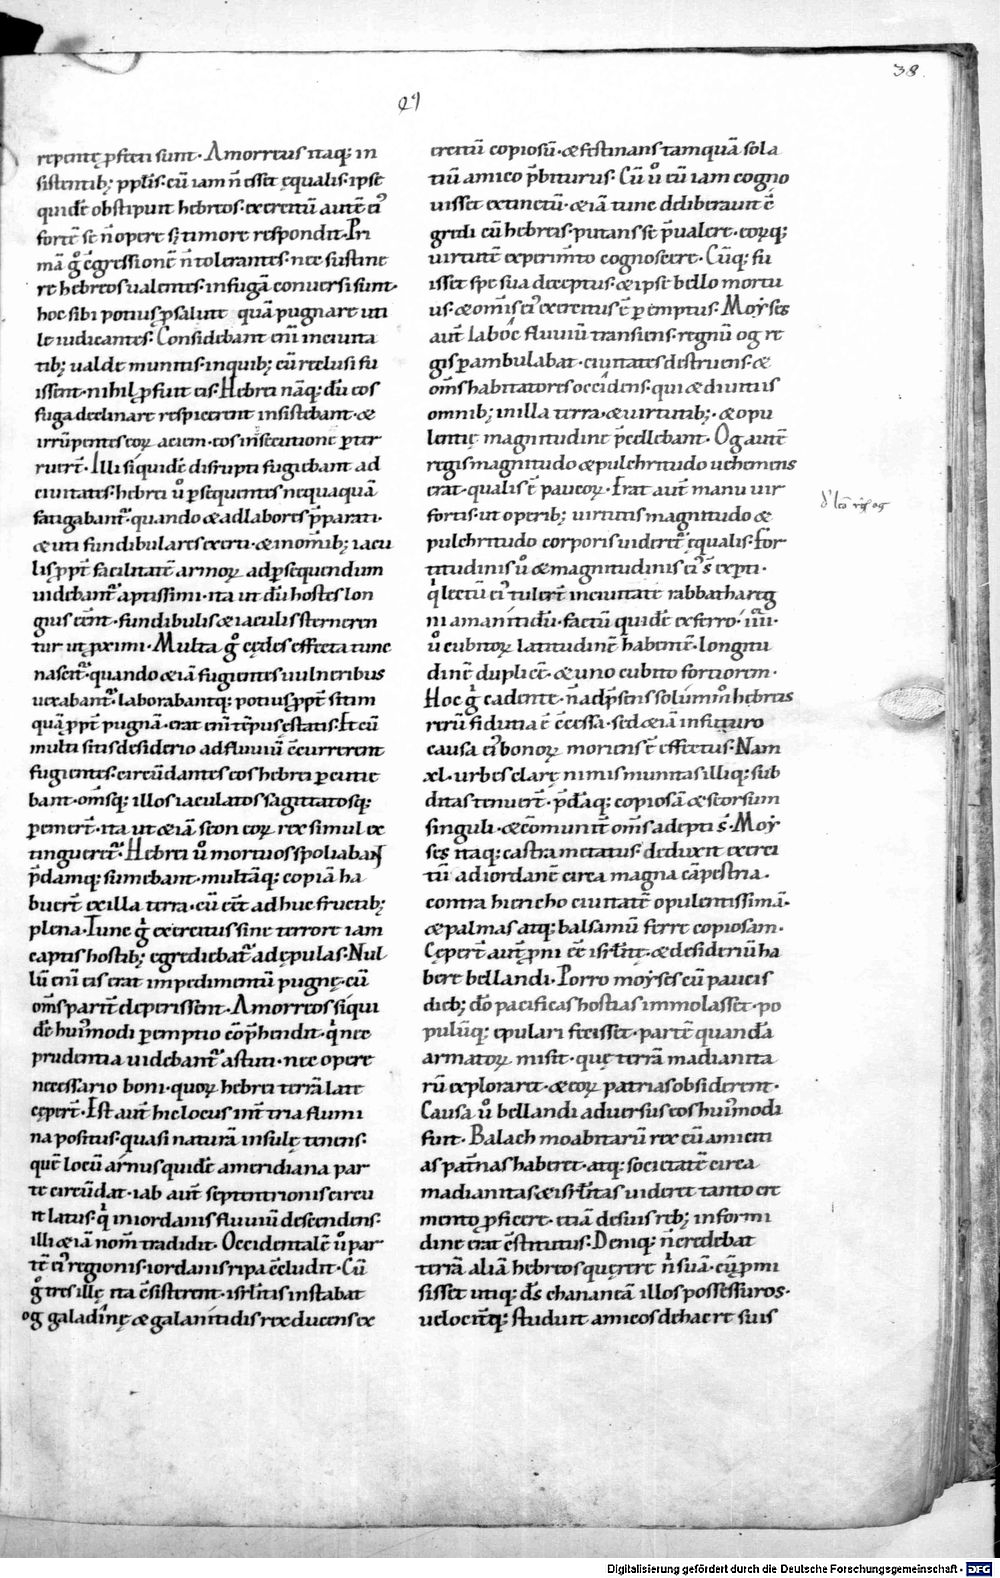 38.
repentę ꝓfecti sunt· Amorreus itaq; in
sistentib; pp̄lis· cū iam n̄ esset ęqualis· ipse
quidē obstipuit hebreos· exercitū autē ei᾽
fortē se n̄ opere sꝫ timore respondit· Pri
mā g̊ egressionē n̄ tolerantes· nec sustine
re hebreos ualentes· in fugā conuersi sunt·
hoc sibi potius ꝓ salute quā pugnare uti
le iudicantes· Considebant eni incuita
tib; ualde munitis· in quib; cū reclusi fu
issent· nihil ꝓfuit eis· Hebrei nāq; dū eos
fuga declinare respicerent insistebant· &
irrūpentes eoꝝ aciem· eos insecutione ꝑter
ruer̄t· Illi siquidē disrupti fugiebant ad
ciuitates· hebrei ů ꝑsequentes nequaquā
fatigabant᾽· quando & ad labores p̄parati·
& uti fundibulares exerti· & in om̄ib; iacu
lis ꝓpt̄ facilitatē armoꝝ ad ꝑsequendum
uidebant᾽ aptissimi· ita ut dū hostes lon
gius eēnt· fundibulis & iaculis sterneren
tur ut ꝓximi· Multa g̊ cędes effecta tunc
nascit᾽· quando & iā fugientes uulneribus
uexabant᾽· laborabantq; potius ꝓpt̄ sitim
quā ꝓpt̄ pugnā· erat eni tēpus ęstatis· Et cū
multi sitis desiderio ad fluuiū c̄currerent
fugientes· circūdantes eos hebrei ꝑcutie
bant· om̄sq; illos iaculatos sagittatosq;
ꝑemer̄t· ita ut & iā seon eoꝝ rex simul ex
tingueret᾽· Hebrei ů mortuos spoliabant
p̄damq; sumebant· multāq; copiā ha
buer̄t ex illa terra· cū eēt ad huc fructib;
plena· Tunc g̊ exercitus sine terrore iam
captis hostib; egrediebat᾽ ad ępulas· Nul
lū eni eis erat impedimentū pugnę· cū
om̄s parit̄ deperissent· Amorreos siqui
dē hui᾽modi ꝑemptio cōp̄hendit· q̇ nec
prudentia uidebant᾽ astuti· nec opere
necessario boni· quoꝝ hebrei terrā late
cęper̄t· Est aut̄ hic locus int̄ tria flumi
na positus· quasi naturā insulę tenens·
quē locū arnus quidē a meridiana par
te circūdat· iab aut̄ septentrionis circu
it latus· q̇ in iordanis fluuiū descendens·
illi & iā nom̄ tradidit· Occidentalē ů par
tē ei᾽ regionis· iordanis ripa c̄cludit· Cū
g̊ res illę ita c̄sisterent· isrl̄itis instabat
og galadinę & galanitidis rex ducens ex
ercitū copiosū· & festinans tamquā sola
tiū amico p̄biturus· Cū ů eū iam cogno
uisset extinctū· & iā tunc deliberauit c̄
gredi cū hebreis· putans se p̄ualere· eoꝝq;
uirtutē experim̄to cognoscere· Cūq; fu
isset spe sua deceptus· & ipse bello mortu
us· & om̄is ei᾽ exercitus ē ꝑemptus· Moyses
aut̄ laboc fluuiū transiens· regnū og re
gis ꝑambulabat· ciuitates destruens· &
om̄s habitatores occidens· qui & diuitiis
omnib; in illa terra· & uirtutib;· & opu
lentię magnitudine p̄cellebant· Og autē
regis magnitudo & pulchritudo uehemens
erat· qualis ē paucoꝝ· Erat aut̄ manu uir
fortis· ut operib; uirtutis magnitudo &
pulchritudo corporis uideret᾽ ęqualis· For
titudinis ů & magnitudinis ei᾽ s̄ exꝑti·
q̇ lectū ei᾽ tuler̄t in ciuitate rabbatha reg
ni amanitidū· factū quidē ex ferro· iiii·
ů cubitoꝝ latitudinē habentē· longitu
dinē duplicē· & uno cubito fortiorem·
Hoc g̊ cadente· n̄ ad p̄sens solūm̊ hebreis
rerū fiducia ē c̄cessa· sed & iā in futuro
causa ei᾽ bonoꝝ moriens ē effectus· Nam
xl· urbes clarę nimis munitas illiq; sub
ditas tenuer̄t· p̄dāq; copiosā & seorsum
singuli· & cōmunit̄ om̄s adepti s̄· Moy
ses itaq; castra metatus· deduxit exerci
tū ad iordanē circa magna cāpestria·
contra hiericho ciuitatē opulentissimā·
& palmas atq; balsamū ferre copiosam·
Cęper̄t aut̄ ꝓni eē isrl̄itę· & desideriū ha
bere bellandi· Porro moyses cū paucis
dieb; dō pacificas hostias immolasset· po
pulūq; epulari fecisset· partē quandā
armatoꝝ misit· quę terrā madianita
rū exploraret· & eoꝝ patrias obsiderent·
d᾽ lecto regis og
Causa ů bellandi aduersus eos hui᾽modi
fuit· Balach moabitarū rex cū amiciti
as pat̄nas haberet· atq; societatē circa
madianitas & isrl̄itas uideret tanto cre
mento ꝓficere· etiā de suis reb; in formi
dine erat c̄stitutus· Deniq; n̄ credebat
terrā aliā hebreos quęrere n̄ suā· cū ꝓmi
sisset utiq; d̄s chananeā illos possessuros·
uelocit̄q; studuit amicos dehaere suis